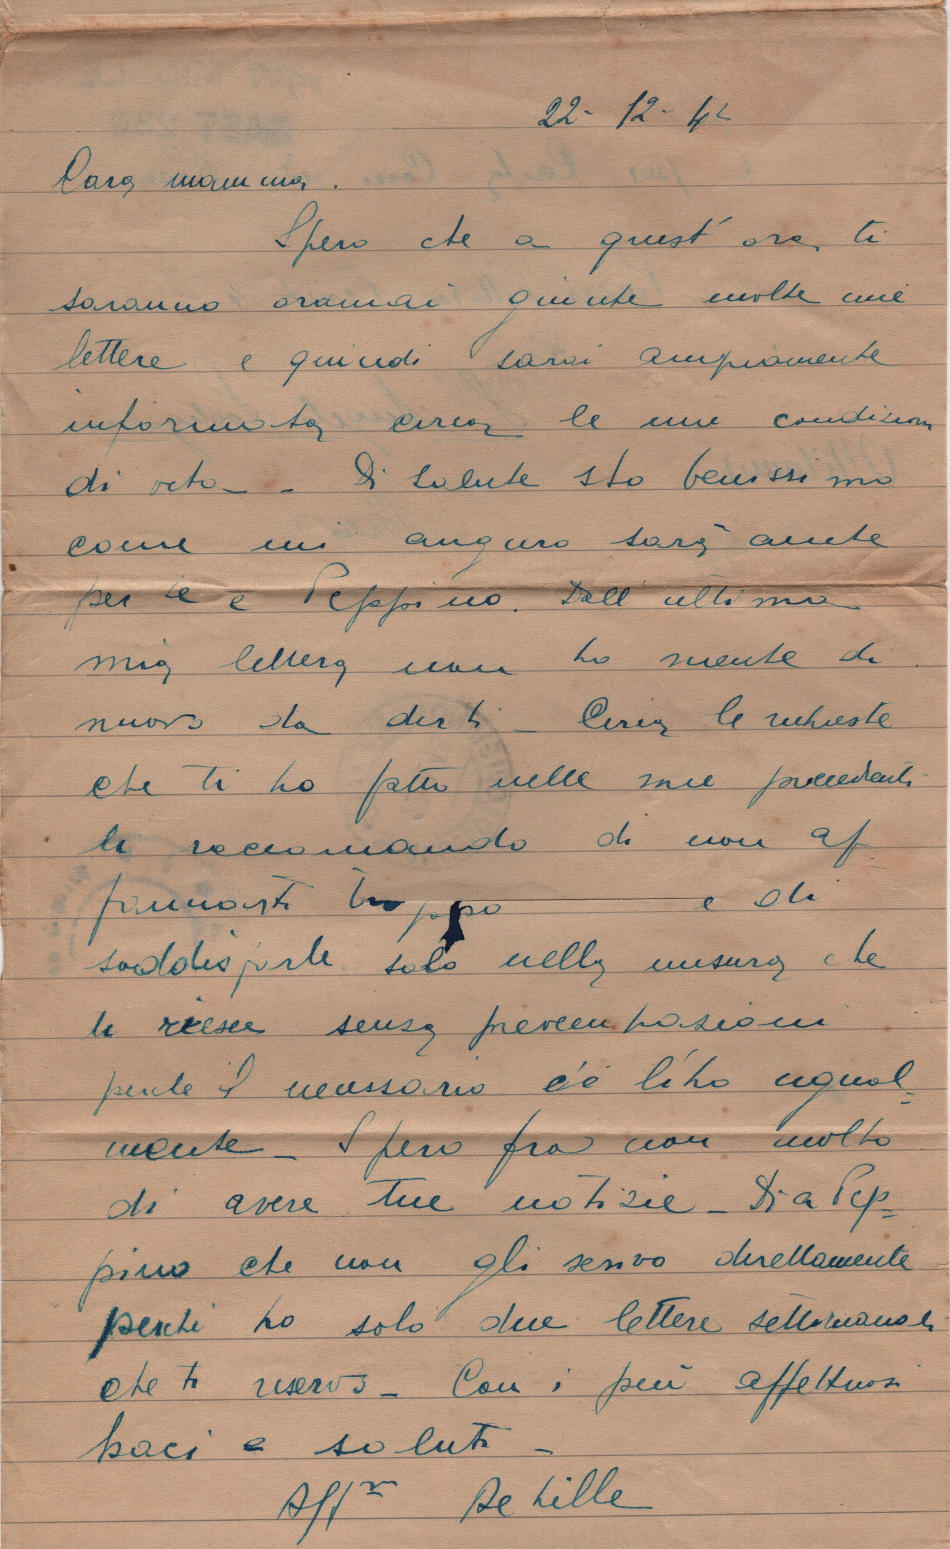 22-12-42
Cara mamma.
Spero che a quest'ora ti
saranno oramai giunte molte mie
lettere e quindi sarai ampiamente
informata circa le mie condizioni
di vita - Di salute sto benissimo
come mi auguro sarà anche
per te e Peppino. Dall'ultima
mia lettera non ho niente di
nuovo da dirti - Circa le richieste
che ti ho fatto nelle mie precedenti
ti raccomando di non af
fannarti troppo e di
soddisfarle solo nella misura che
ti riesce senza preoccupazioni
perche il necessario c'è l'ho ugual=
mente - Spero fra non molto
di avere tue notizie - Di a Pep=
pino che non gli scrivo direttamente
perchè ho solo due lettere settimanali
che ti riservo - Con i più affettuosi
baci e saluti -
Aff.mo Achille